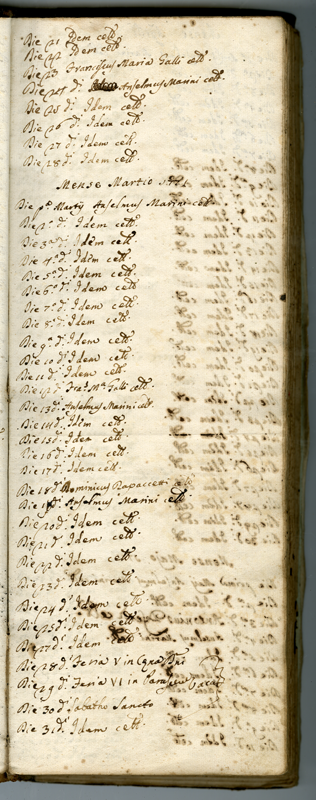 Die 21 Idem cełt.
Die 22 Idem cełt.
Die 23 Franciscus Maria Galli cełt.
Die 24 d.º Anselmus Marini cełt.
Die 25 d.º Idem cełt.
Die 26 d.º Idem cełt.
Die 27 d.º Idem cełt.
Die 28 d.º Idem cełt.
Mense Martio
Die pª Martij Anselmus Marini cełt.
Die 2ª d.º Idem cełt.
Die 3ª d.º Idem cełt.
Die 4ª d.º Idem cełt.
Die 5ª d.º Idem cełt.
Die 6ª d.º Idem cełt.
Die 7ª d.º Idem cełt.
Die 8ª d.º Idem cełt.
Die 9ª d.º Idem cełt.
Die 10 d.º Idem cełt.
Die 11 d.º Idem cełt.
Die 12 d.º Fra: Mª Galli cełt.
Die 13 d.º Anselmus Marini cełt.
Die 14 d.º Idem cełt.
Die 15 d.º Idem cełt.
Die 16 d.º Idem cełt.
Die 17 d.º Idem cełt.
Die 18 d.º Dominicus Rapaccetti
Die 19 d.º Anselmus Marini cełt.
Die 20 d.º Idem cełt.
Die 21 d.º Idem cełt.
Die 22 d.º Idem cełt.
Die 23 d.º Idem cełt.
Die 24 d.º Idem cełt.
Die 25 d.º Idem cełt.
Die 27 d.º Idem cełt.
Die 28 d.º Feria V in Cena Dni
Die 29 d.º Feria VI in Parasceve
Die 30 d.º Sabatho Sancto
Die 31 d.º Idem cełt.